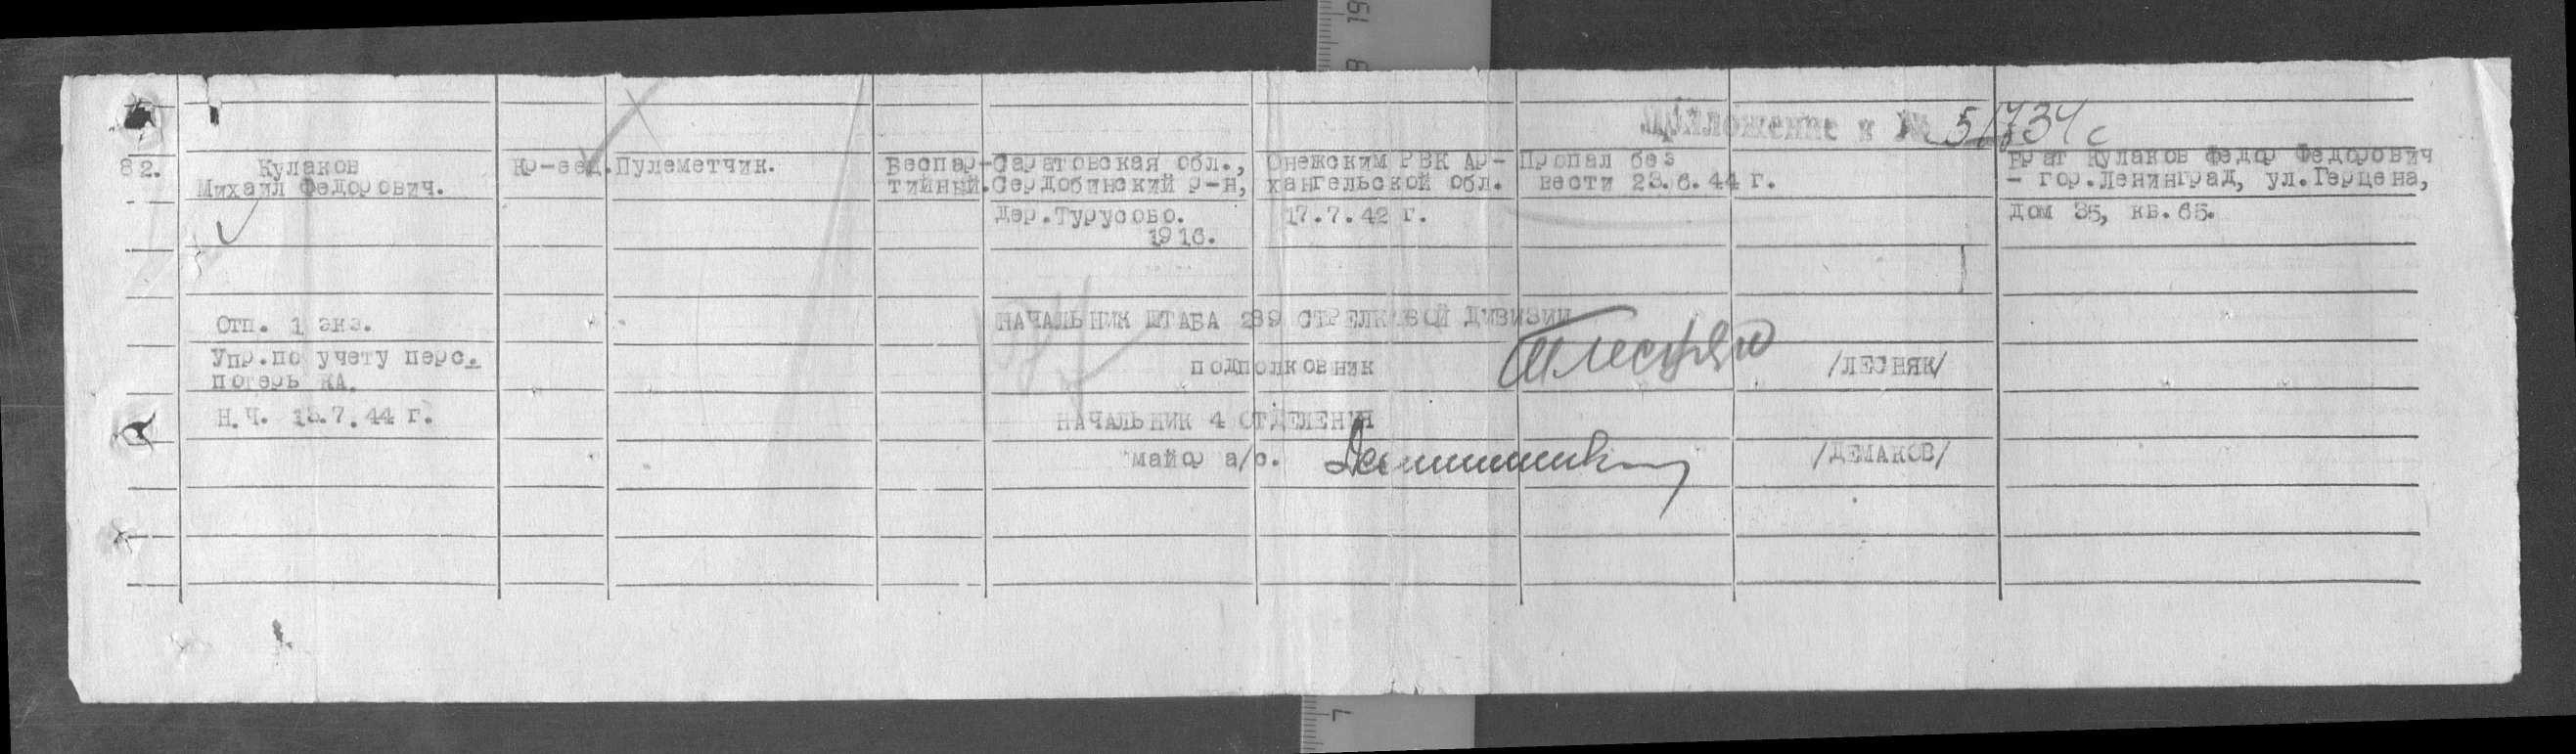 Приложение к № 51734с
82.
Кулаков
Михаил Федорович.
Кр-еец.
Пулеметчик.
Беспар-
тийный.
Саратовская обл.,
Сердобинский р-н,
Дер.Турусово.
1916.
Онежским РВК Ар-
хангельской обл.
17.7.42 г.
Пропал без
вести 23.6.44 г.
Брат Кулаков Федор Федорович
- гор.Ленинград, ул.Герцена,
дом 35, кв.65.
Отп. 1 экз.
Упр.по учету перс.
потерь КА.
Н.Ч. 13.7.44 г.
НАЧАЛЬНИК ШТАБА 289 СТРЕЛКОВОЙ ДИВИЗИИ
подполковник
/ЛЕСНЯК/
НАЧАЛЬНИК 4 ОТДЕЛЕНИЯ
майор а/с.
/ДЕМАКОВ/
19
8
7